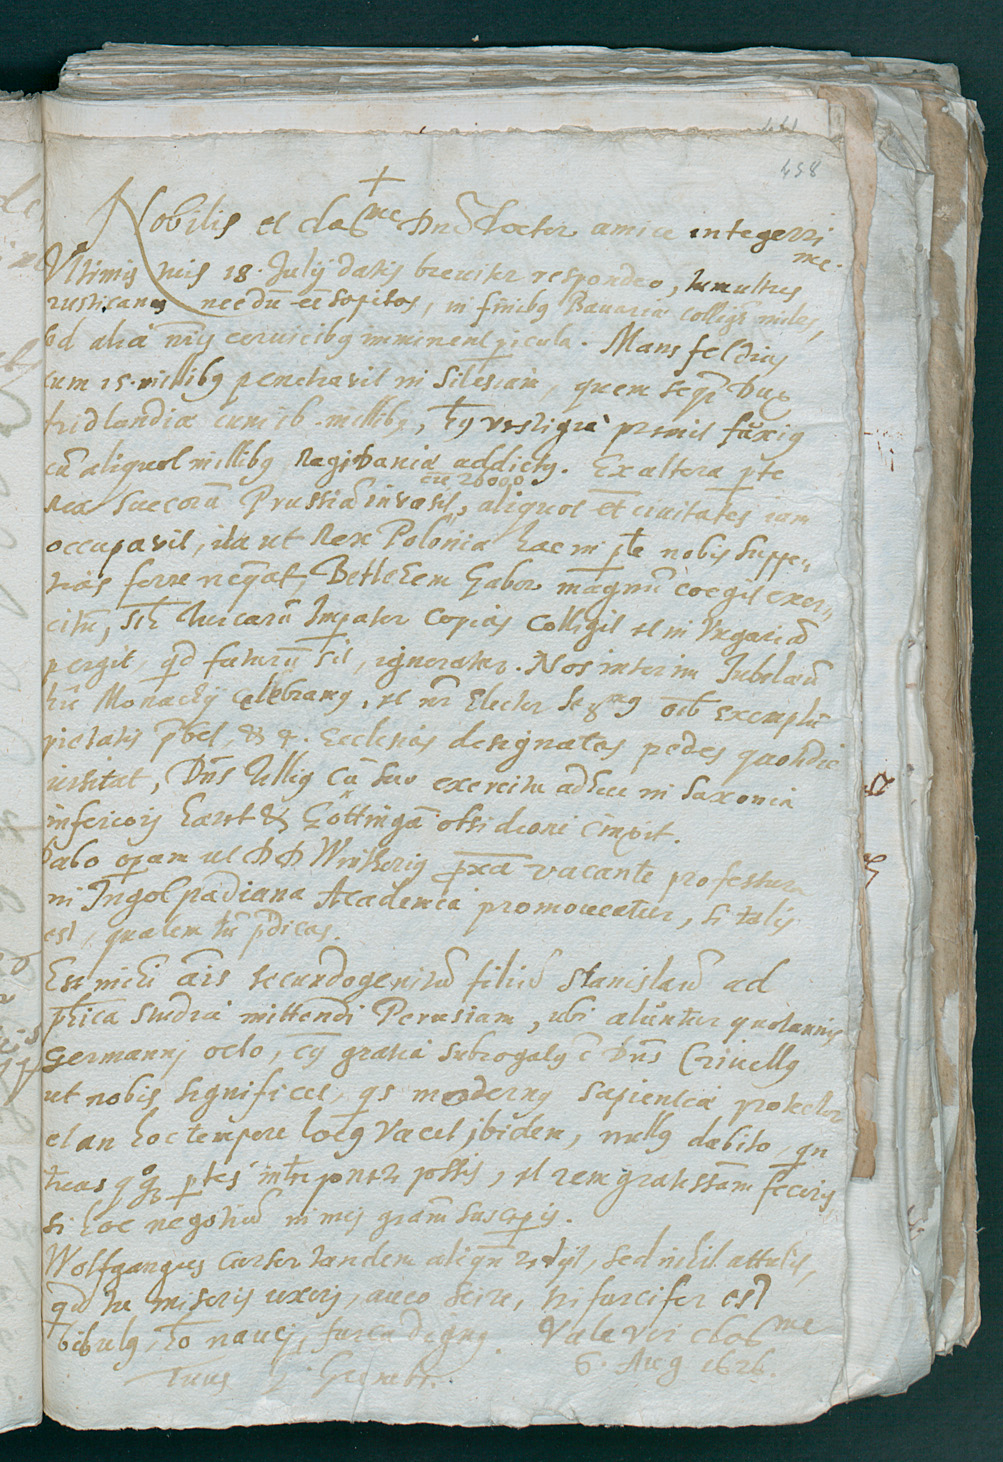 441
458
+
Nobilis et claᵐᵉ Dñe Doctor amice integerri
me.
Ultimis tuis 18. Julij datis breviter respondeo, tumultus
rusticanos necdũ eẽ sopitos, in finibus Bavariæ colligit miles,
sed alia nr̃is cervicibus imminent picula. Mansfeldius
cum 15. millibus penetravit in Silesiam, quem seqt̃ Dux
fridlandiæ cum 16. millibus,
cũ aliquot millibus Regi Daniæ addictus. Ex altera pte
cũ 20000
Rex Suecorũ Prussiã invasit, aliquot et civitates iam
occupavit, ita ut Rex Poloniæ hac in pte nobis suppe„
tias ferre neqeat, Betlehem Gabor magnũ coegit exer„
citũ, Turcarũ Impator copias colligit et in Ungariã
pergit, qd futurũ sit, ignoratur. Nos interim Jubilæũ
Monachij celebramus, et nr̃ Elector oĩb exemplũ
pietatis p̃bet, & 4. Ecclesias designatas pedes quotidie
visitat, Dñs Tillius cũ suo exercitu adhuc in Saxonia
inferiori hæret & Göttingã obsidione cinxit.
Dabo opam ut D D Winklerius vacante professura
in Ingolstadiana Academia promoveatur, si talis
est, qualem tũ p̃dicas.
Est mihi secundogenitũ filiũ Stanislaũ ad
studia mittendi Perusiam, ubi aluntur quotannis
Germani octo, gratia subrogatus Dñs Crivellus
ut nobis significet, qs modernus sapientiæ protector
et an hoc tempore locus vacet ibidem, nullus dubito, qn
tuas qqs ptes interponere possis, et rem gratissam feceris
si hoc negotiũ in mei gram suscipis.
Wolfgangus cursor tandem aliqñ redijt, sed nihil attulit,
qd tu miseris uxori, aveo scire, furcifer est
bibulus, nauci, furca dignus. Vale vir claᵐᵉ
6. Aug 1626.
Tuus